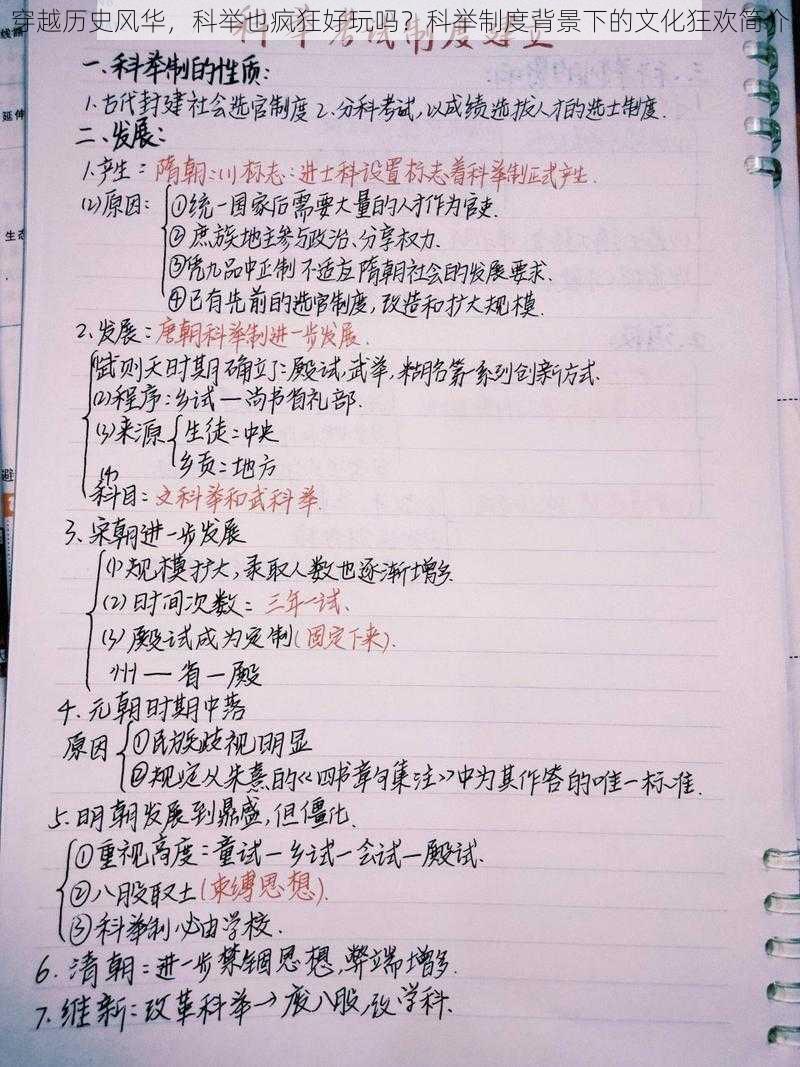 穿越历史风华，科举也疯狂好玩吗？科举制度背景下的文化狂欢简介
科举考试制度建立
一、科举制的性质：
1.古代封建社会选官制度 2.分科考试，以成绩选拔人才的选士制度.
二、发展：
1.产生：隋朝：(1)标志：进士科设置标志着科举制正式产生.
(2)原因：①统一国家后需要大量的人才作为官吏.
②庶族地主参与政治、分享权力.
③凭九品中正制不适应隋朝社会的发展要求.
④已有先前的选官制度，改造和扩大规模.
2.发展：唐朝科举制进一步发展.
(1)武则天时期确立了：殿试，武举，糊名第一系列创新方式.
(2)程序：乡试—尚书省礼部.
(3)来源 生徒：中央
乡贡：地方
(4)
科目：文科举和武科举.
3.宋朝进一步发展
(1)规模扩大，录取人数也逐渐增多.
(2)时间次数：三年一试.
(3)殿试成为定制(固定下来).
州—省—殿
4.元朝时期中落
原因 ①民族歧视明显
②规定以朱熹的《四书章句集注》中为其作答的唯一标准.
5.明朝发展到鼎盛，但僵化.
①重视高度：童试—乡试—会试—殿试.
②八股取士(束缚思想).
③科举制必由学校.
6.清朝：进一步禁锢思想，弊端增多.
7.维新：改革科举→废八股，改学科.
线新
延伸
生态
避